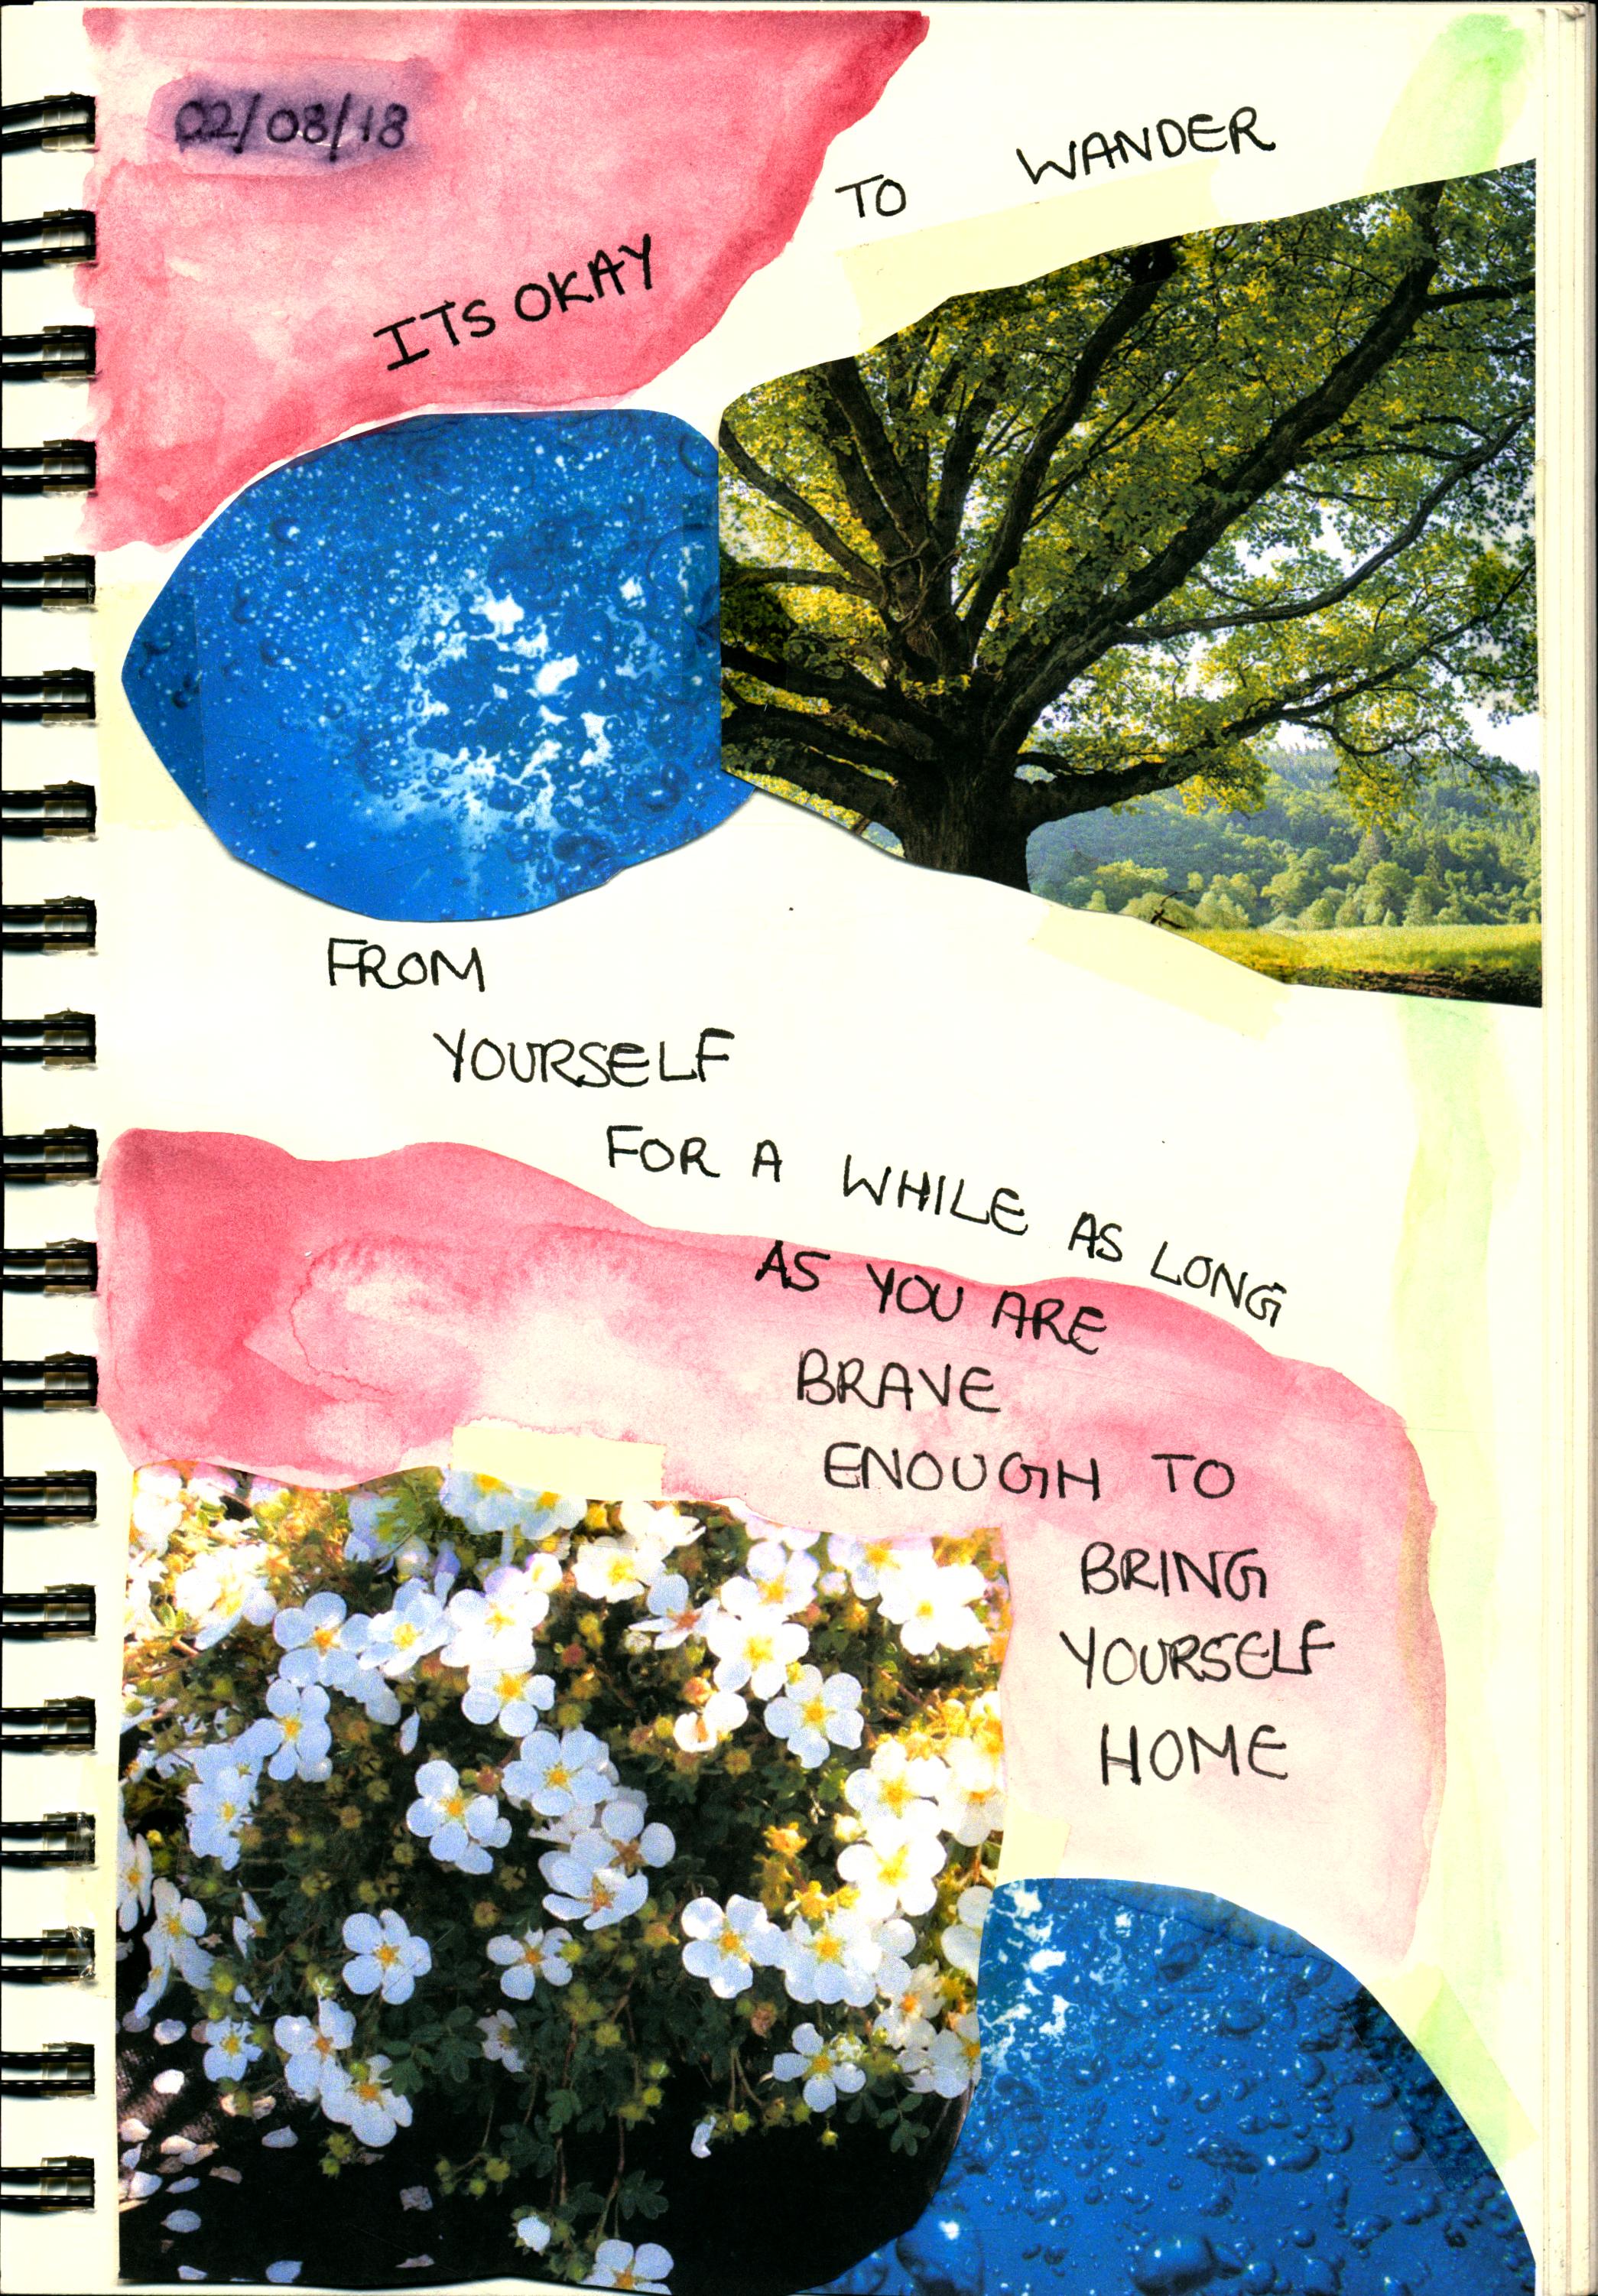 02/08/18
ITS OKAY TO WANDER
FROM
YOURSELF
FOR A WHILE AS LONG
AS YOU ARE
BRAVE
ENOUGH TO
BRING
YOURSELF
HOME